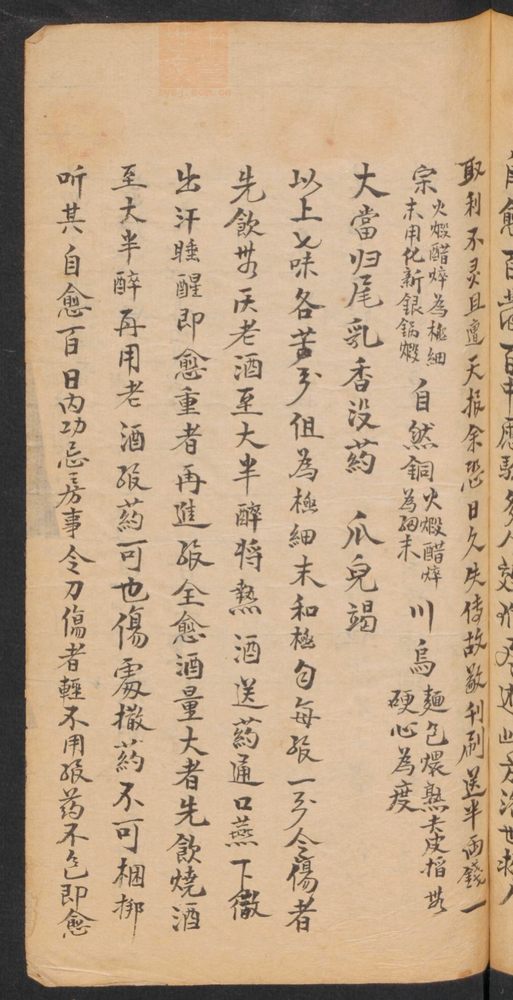 取利不灵且遭天报余恐日久失传故敬刊刷送半両錢一
宗火煅醋焠為極細末用化新銀鍋煅 自然銅火煅醋焠為細末 川烏麵包煨熟去皮掐無硬心為度
大當归尾乳香没葯 爪皃竭
以上七味各等分俱為極細末和極匀每服一分令傷者
先飲無灰老酒至大半醉将熟酒送葯通口燕下微
出汗睡醒即愈重者再進服全愈酒量大者先飲燒酒
至大半醉再用老酒服葯可也傷處撒葯不可梱挷
听其自愈百日内功忌房事令刀傷者輕不用服葯不包即愈